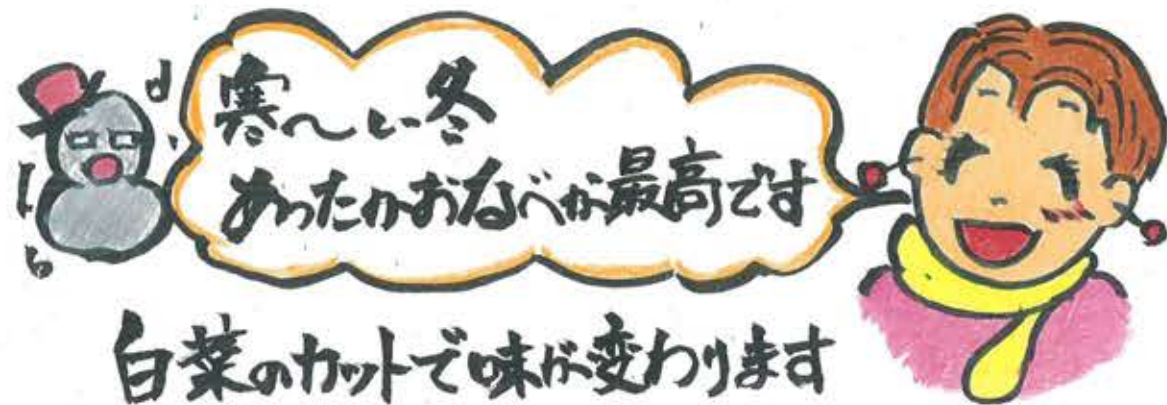 寒〜い冬
あったかおなべが最高です
白菜のカットで味が変わります